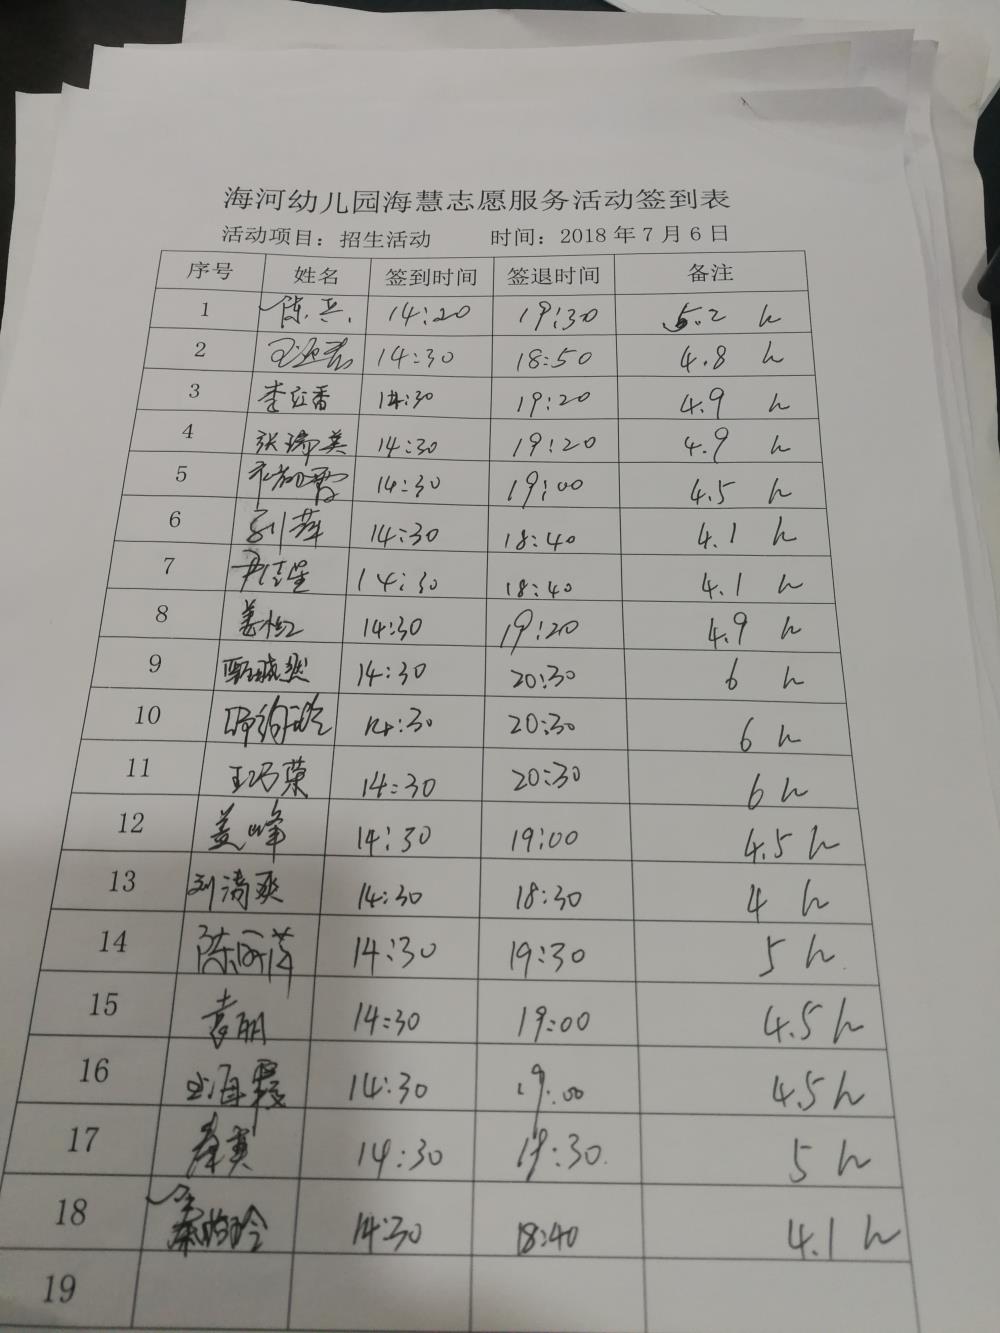 海河幼儿园海慧志愿服务活动签到表
活动项目：招生活动 时间：2018年7月6日
序号 姓名 签到时间 签退时间 备注
1 陈兵 14:20 19:30 5.2 h
2 14:30 18:50 4.8 h
3 李红香 14:30 19:20 4.9 h
4 张瑞英 14:30 19:20 4.9 h
5 14:30 19:00 4.5 h
6 刘萍 14:30 18:40 4.1 h
7 尹佳星 14:30 18:40 4.1 h
8 姜红 14:30 19:20 4.9 h
9 14:30 20:30 6 h
10 14:30 20:30 6 h
11 王巧荣 14:30 20:30 6 h
12 姜峰 14:30 19:00 4.5 h
13 刘清爽 14:30 18:30 4 h
14 陈丽萍 14:30 19:30 5 h
15 李明 14:30 19:00 4.5 h
16 14:30 19:00 4.5 h
17 14:30 19:30 5 h
18 14:30 18:40 4.1 h
19